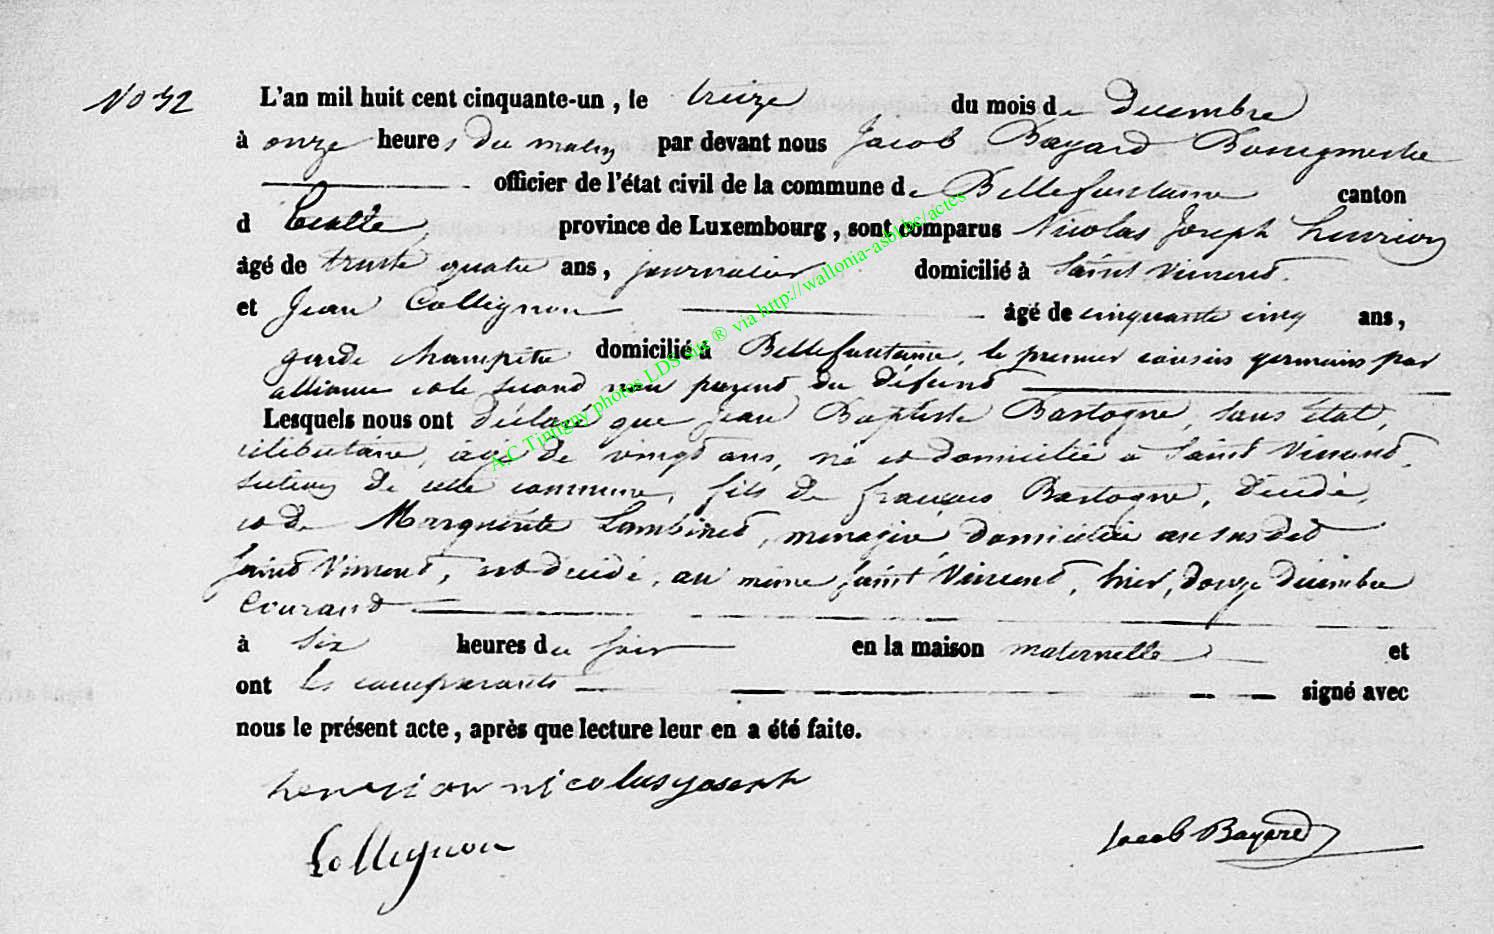 No 32 L'an mil huit cent cinquante-un, le treize du mois de décembre
à onze heures du matin par devant nous Jacob Bayard Bourgmestre
officier de l'état civil de la commune de Bellefontaine canton
d'Etalle, province de Luxembourg, sont comparus Nicolas Joseph henrion
âgé de trente quatre ans, journalier domicilié à Saint Vincent.
et Jean Collignon âgé de cinquante cinq ans,
garde champêtre domicilié à Bellefontaine, le premier cousin germains par
alliance et le second non parent du défunt
Lesquels nous ont déclaré que Jean Baptiste Bastogne, sans état,
célibataire, âgé de vingt ans, né et domicilié à Saint Vincent,
section de cette commune, fils de françois Bastogne, décédé,
et de Marguerite Lambinet, ménagère, domiciliée au susdit
Saint Vincent, est décédé, au même Saint Vincent, hier, douze décembre
Courant
à six heures du soir en la maison maternelle et
ont les comparants signé avec
nous le présent acte, après que lecture leur en a été faite.
henrion nicolas joseph
Collignon Jacob Bayard
A.C Tintigny photos LDS via http://wallonia-asbl.be/actes